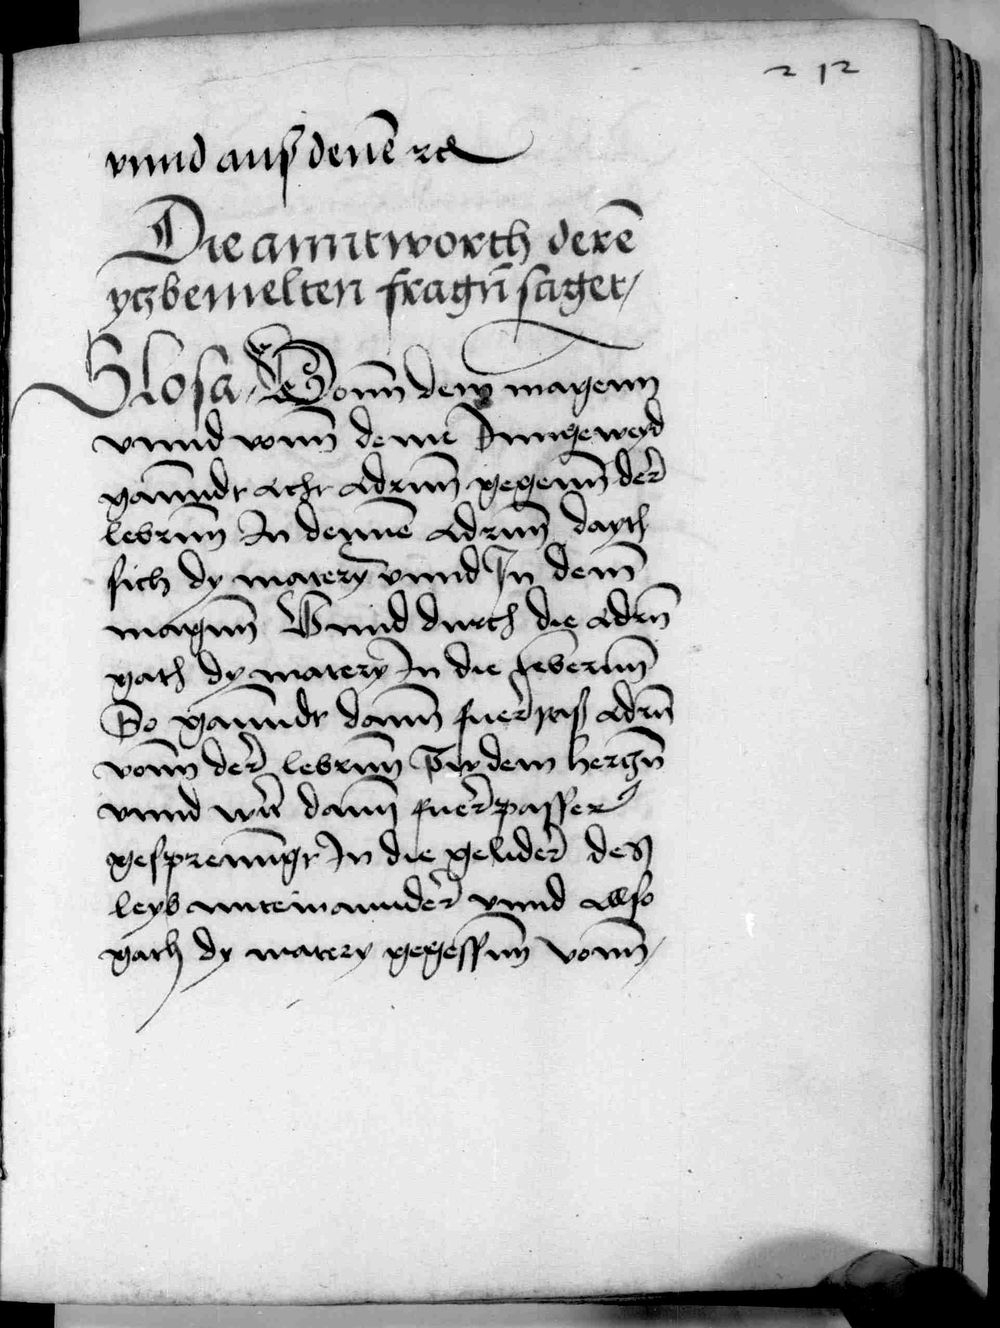 212
vnnd auß denē ꝛc
Die anntworth derē
yczbemelten fragn̄ saget
Glosa Vonn dem magenn
vnnd vonn denē Inngeweyd
ganndt acht adrnn gegenn der
lebrnn In dennē adrnn dayth
sich dy matery vnnd In dem
magnn Vnnd durch die adrn̄
gath dy matery In die lebernn
So ganndt dann fuerpas adrn̄
vonn der lebrnn zw dem herczn̄
vnnd wirt dann fuerpasser
gesprenngt In die gelider des
leyb miteinannder vnnd also
gath dy matery gegessnn vonn